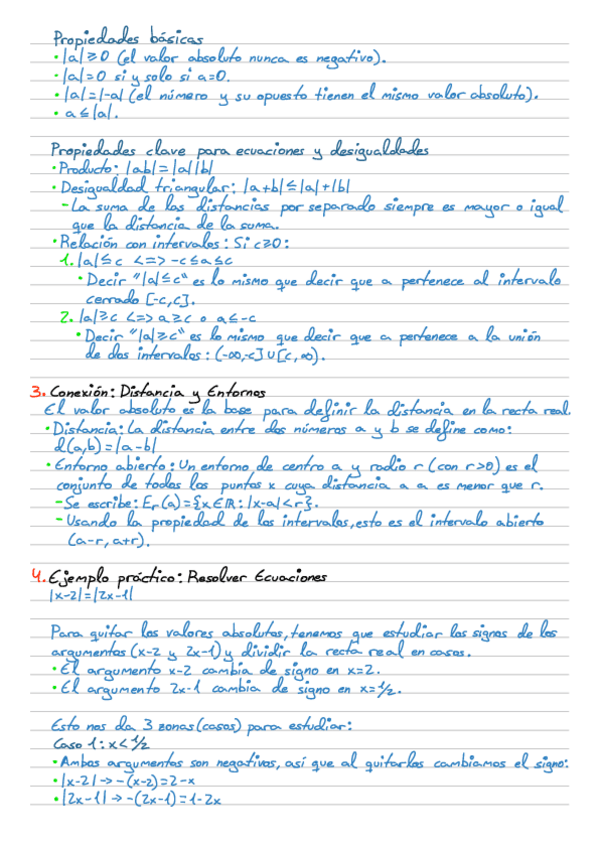 Propiedades básicas
• |a|≥0 (el valor absoluto nunca es negativo).
• |a|=0 si y solo si a=0.
• |a|=|-a| (el número y su opuesto tienen el mismo valor absoluto).
• a≤|a|.
Propiedades clave para ecuaciones y desigualdades
• Producto: |ab|=|a||b|
• Desigualdad triangular: |a+b|≤|a|+|b|
- La suma de las distancias por separado siempre es mayor o igual
que la distancia de la suma.
• Relación con intervalos: Si c≥0:
1. |a|≤c <=> -c≤a≤c
• Decir "|a|≤c" es lo mismo que decir que a pertenece al intervalo
cerrado [-c,c].
2. |a|≥c <=> a≥c o a≤-c
• Decir "|a|≥c" es lo mismo que decir que a pertenece a la unión
de dos intervalos: (-∞,-c]∪[c,∞).
3. Conexión: Distancia y Entornos
El valor absoluto es la base para definir la distancia en la recta real.
• Distancia: La distancia entre dos números a y b se define como:
d(a,b)=|a-b|
• Entorno abierto: Un entorno de centro a y radio r (con r>0) es el
conjunto de todos los puntos x cuya distancia a a es menor que r.
- Se escribe: Er(a)={x∈ℝ: |x-a|<r}.
- Usando la propiedad de los intervalos, esto es el intervalo abierto
(a-r, a+r).
4. Ejemplo práctico: Resolver Ecuaciones
|x-2|=|2x-1|
Para quitar los valores absolutos, tenemos que estudiar los signos de los
argumentos (x-2 y 2x-1) y dividir la recta real en casos.
• El argumento x-2 cambia de signo en x=2.
• El argumento 2x-1 cambia de signo en x=1/2.
Esto nos da 3 zonas (casos) para estudiar:
Caso 1: x<1/2
• Ambos argumentos son negativos, así que al quitarlos cambiamos el signo:
• |x-2| -> -(x-2)=2-x
• |2x-1| -> -(2x-1)=1-2x